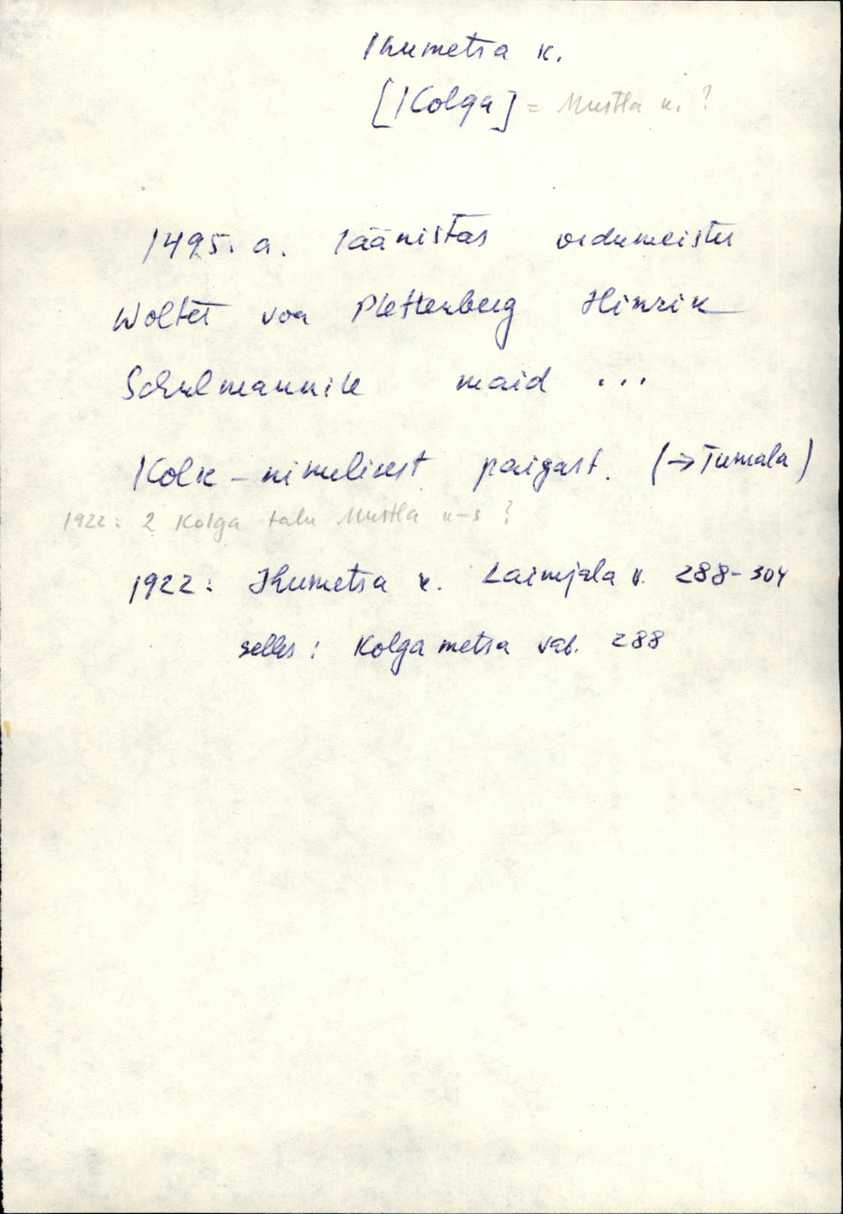 Ihumetsa k.
[Kolga] = Mustla k. ?
1495. a. läänistas ordumeister
Wolter von Plettenberg Hinrik
Schulmannile maid ...
Kolk-nimelisest paigast. (→ Tumala)
1922: 2 Kolga talu Mustla k-s ?
1922: Ihumetsa k. Laimjala v. 288-304
selles: Kolga metsa vab. 288